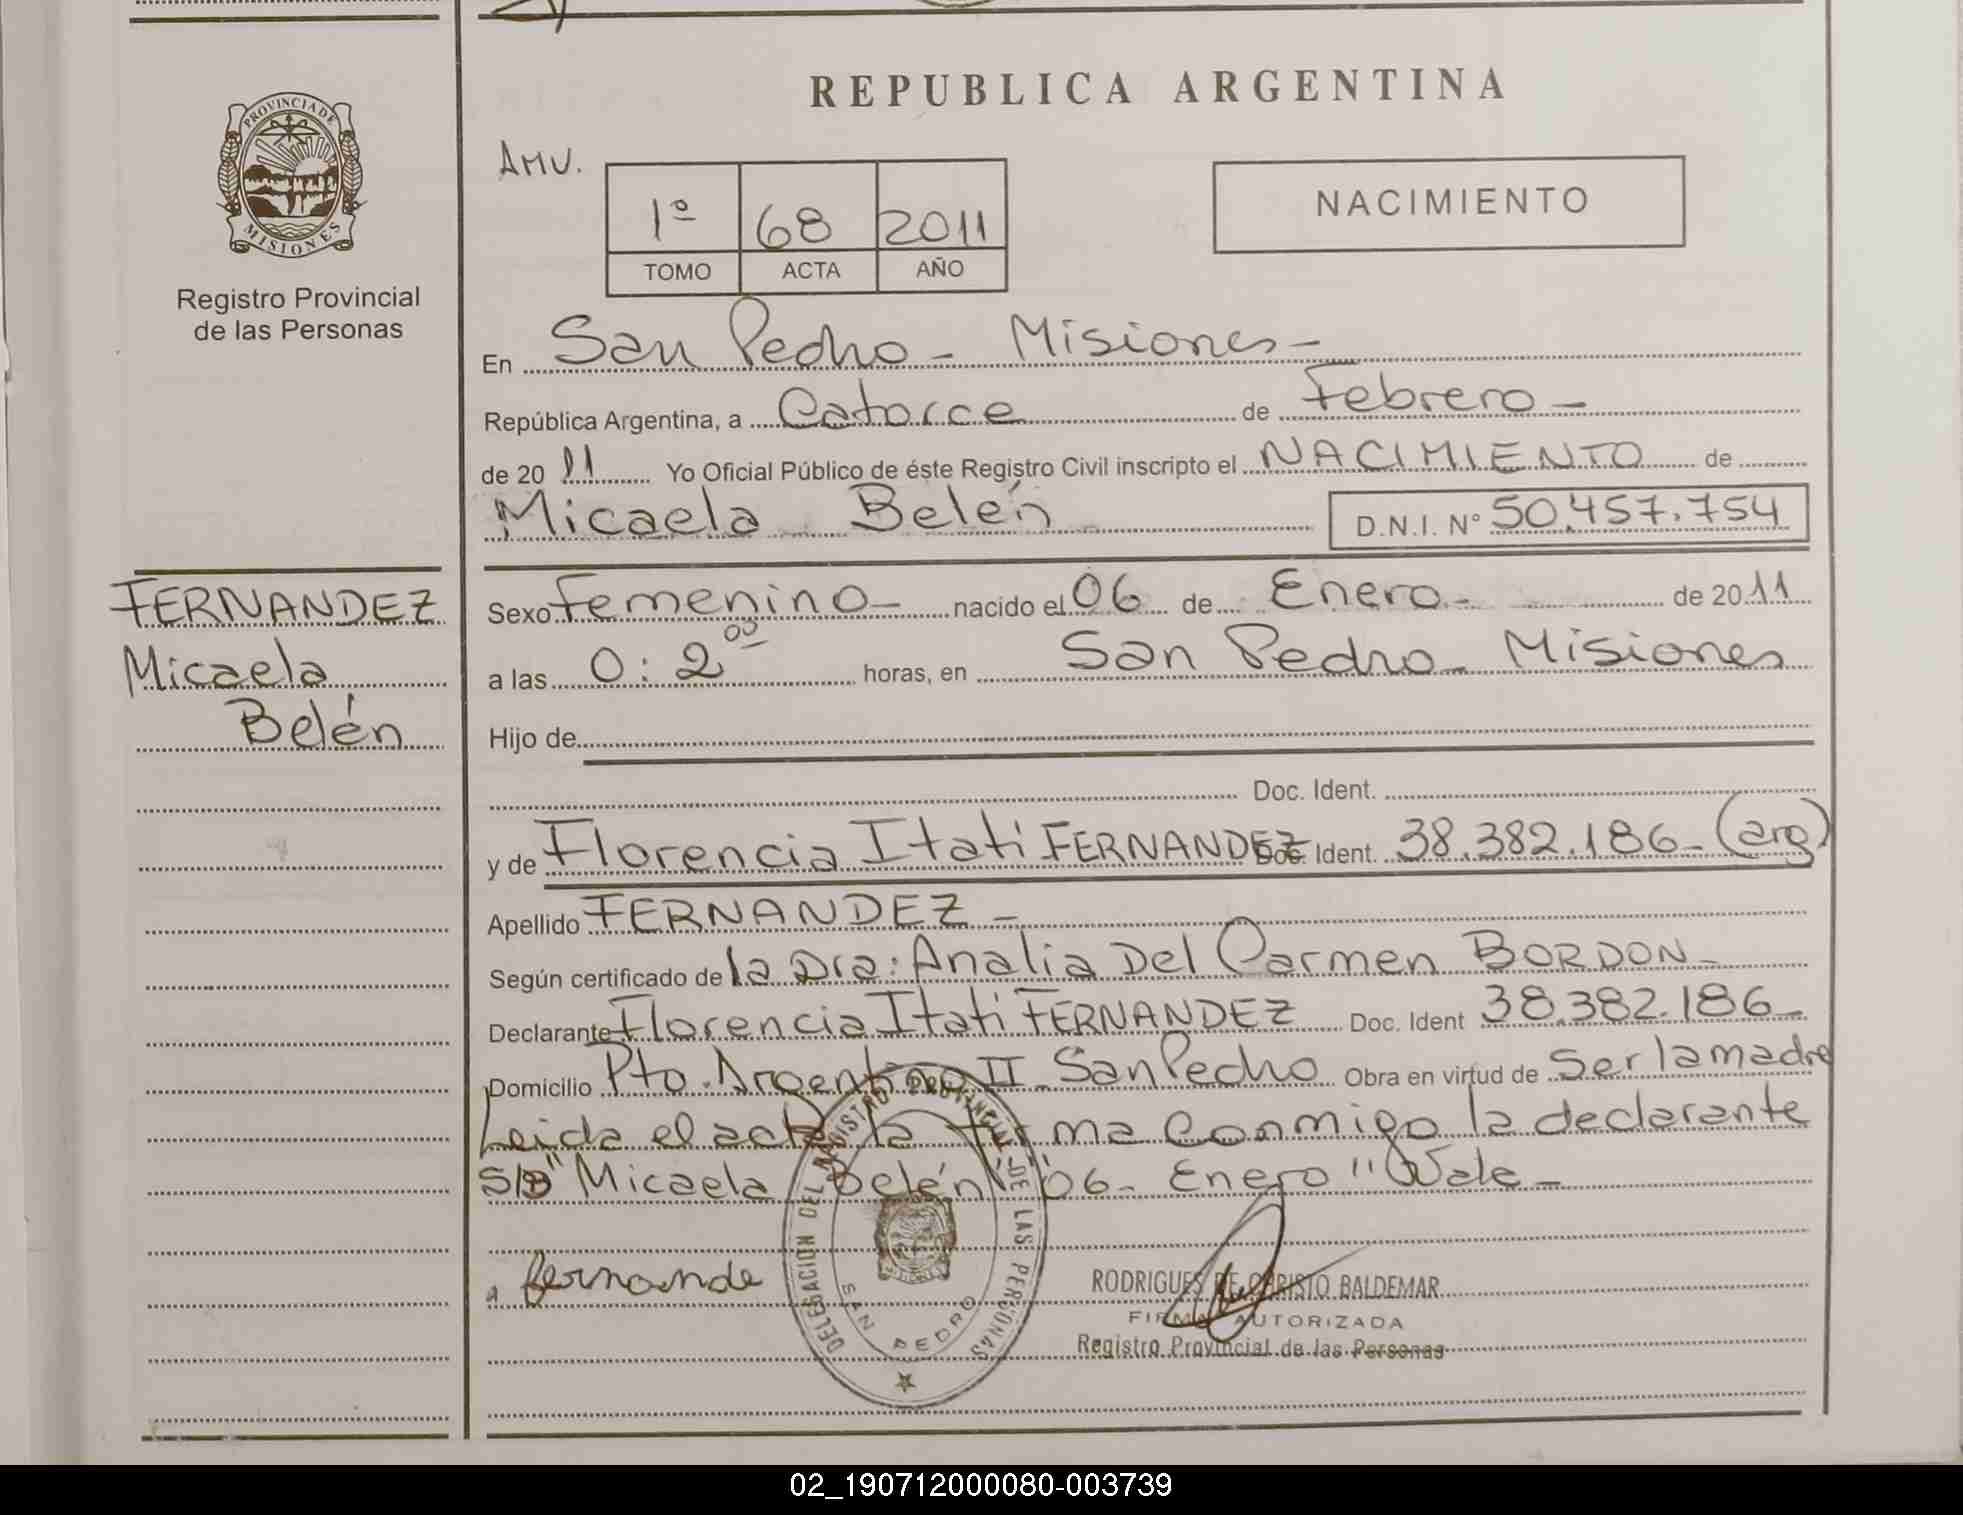 REPUBLICA ARGENTINA
PROVINCIA DE MISIONES
Registro Provincial
de las Personas
AMU.
1º 68 2011
TOMO ACTA AÑO
NACIMIENTO
En San Pedro - Misiones -
República Argentina, a Catorce de Febrero -
de 2011 Yo Oficial Público de éste Registro Civil inscripto el NACIMIENTO de
Micaela Belén D.N.I. Nº 50.457.754
FERNANDEZ
Micaela
Belén
Sexo Femenino - nacido el 06 de Enero - de 2011
a las 0:2 00 horas, en San Pedro - Misiones
Hijo de
Doc. Ident.
y de Florencia Itati FERNANDEZ Doc. Ident. 38.382.186 - (arg)
Apellido FERNANDEZ -
Según certificado de la Dra: Analia Del Carmen BORDON -
Declarante Florencia Itati FERNANDEZ Doc. Ident 38.382.186 -
Domicilio Pto. Argentino II - San Pedro Obra en virtud de Ser la madre
Leida el acta la firma conmigo la declarante
S/B "Micaela Belén" "06 - Enero" Vale -
fernande
DELEGACION DEL REGISTRO PROVINCIAL DE LAS PERSONAS
SAN PEDRO
RODRIGUES DE CHRISTO BALDEMAR
FIRMA AUTORIZADA
Registro Provincial de las Personas
02_190712000080-003739